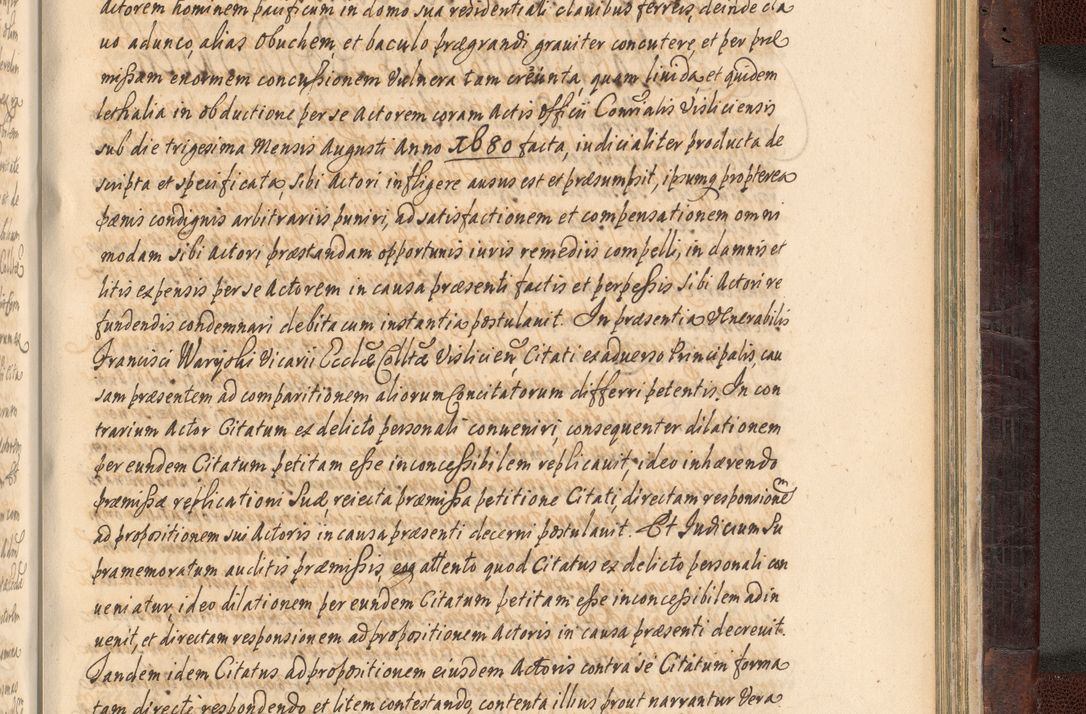 actorem hominem pacificum in domo sua residentiali clavibus ferreis, deinde cla
vo adunco, alias obuchem et baculo prægrandi graviter concutere, et per præ
missam enormem concussionem vulnera tam creunta, quam livida, et quidem
lethalia in obductione per se Actorem coram Actis Officii Consularis Visliciensis
sub die trigesima Mensis Augusti Anno 1680 facta, iudicialiter producta de
scripta et specificata sibi Actori infligere ausus est et præsumpsit, ipsumq propterea
pænis condignis arbitrariis puniri, ad satisfactionem et compensationem omni
modam sibi Actori præstandam opportunis iuris remediis compelli, in damnis et
litis expensis per se Actorem in causa præsenti factis et perpessis sibi Actori re
fundendis condemnari debita cum instantia postulavit. In præsentia Venerabilis
Francisci Waryski Vicarii Ecclæ Colltæ Vislicien Citati ex adverso Principalis, cau
sam præsentem ad comparitionem aliorum Concitatorum differri petentis. In con
trarium Actor Citatum ex delicto personali conveniri, consequenter dilationem
per eundem Citatum petitam esse inconcessibilem replicavit, ideo inhærendo
præmissæ replicationi suæ, reiecta præmissa petitione Citati, directam responsionem
ad propositionem sui Actoris in causa præsenti decerni postulavit. Et Iudicium su
pramemoratum auditis præmissis, eoq attento quod Citatus ex delicto personali con
veniatur, ideo dilationem per eundem Citatum petitam esse inconcessibilem adin
venit, et directam responsionem ad propositionem Actoris in causa præsenti decrevit.
Tandem idem Citatus ad propositionem eiusdem Actoris contra se Citatum forma
tam directe respondendo et litem contestando, contenta illius prout narrantur vera